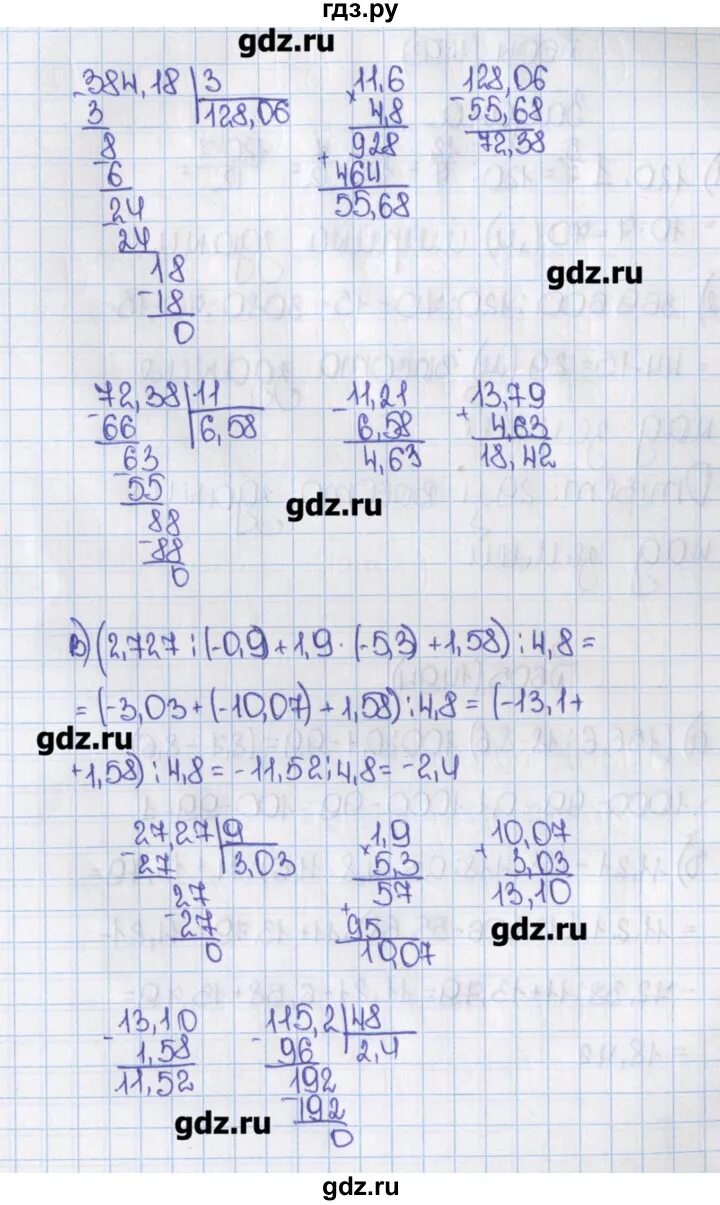 гдз.ру
gdz.ru
384,18 | 3
3 128,06
8
6
24
24
18
-18
0
11,6
× 4,8
928
+ 464
55,68
128,06
- 55,68
72,38
gdz.ru
72,38 | 11
- 66 6,58
63
- 55
88
- 88
0
- 11,21
6,58
4,63
13,79
+ 4,63
18,42
gdz.ru
в) (2,727 : (-0,9) + 1,9 · (-5,3) + 1,58) : 4,8 =
= (-3,03 + (-10,07) + 1,58) : 4,8 = (-13,1 +
gdz.ru
+1,58) : 4,8 = -11,52 : 4,8 = -2,4
27,27 | 9
- 27 3,03
27
- 27
0
1,9
× 5,3
57
+ 95
10,07
10,07
+ 3,03
13,10
gdz.ru
- 13,10
1,58
11,52
115,2 | 48
- 96 2,4
192
- 192
0
gdz.ru
gdz.ru